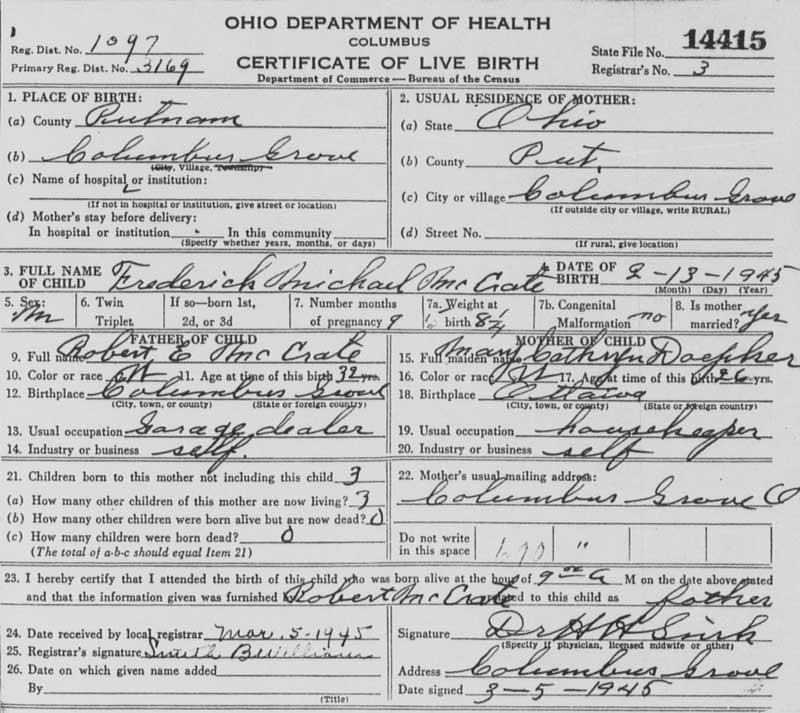 OHIO DEPARTMENT OF HEALTH
COLUMBUS
CERTIFICATE OF LIVE BIRTH
Department of Commerce — Bureau of the Census
Reg. Dist. No. 1097
Primary Reg. Dist. No. 3169
State File No. 14415
Registrar's No. 3
1. PLACE OF BIRTH:
(a) County Putnam
(b) Columbus Grove
(City, Village, Township)
(c) Name of hospital or institution:
(If not in hospital or institution, give street or location)
(d) Mother's stay before delivery:
In hospital or institution In this community
(Specify whether years, months, or days)
2. USUAL RESIDENCE OF MOTHER:
(a) State Ohio
(b) County Put.
(c) City or village Columbus Grove
(If outside city or village, write RURAL)
(d) Street No.
(If rural, give location)
3. FULL NAME OF CHILD Frederick Michael McCrate
4. DATE OF BIRTH 2-13-1945
(Month) (Day) (Year)
5. Sex: M
6. Twin Triplet
If so—born 1st, 2d, or 3d
7. Number months of pregnancy 9
7a. Weight at birth 8 1/2
7b. Congenital Malformation no
8. Is mother married? Yes
FATHER OF CHILD
9. Full name Robert E McCrate
10. Color or race W 11. Age at time of this birth 32 yrs.
12. Birthplace Columbus Grove
(City, town, or county) (State or foreign country)
13. Usual occupation Garage dealer
14. Industry or business self.
MOTHER OF CHILD
15. Full maiden name Mary Cathryn Doepker
16. Color or race W 17. Age at time of this birth 26 yrs.
18. Birthplace Ottawa
(City, town, or county) (State or foreign country)
19. Usual occupation housekeeper
20. Industry or business self
21. Children born to this mother not including this child 3
(a) How many other children of this mother are now living? 3
(b) How many other children were born alive but are now dead? 0
(c) How many children were born dead? 0
(The total of a-b-c should equal Item 21)
22. Mother's usual mailing address:
Columbus Grove O
Do not write in this space
23. I hereby certify that I attended the birth of this child who was born alive at the hour of 9 00 A M on the date above stated
and that the information given was furnished Robert McCrate related to this child as father
24. Date received by local registrar Mar. 5-1945
25. Registrar's signature Smith B Williams
26. Date on which given name added
By
(Title)
Signature Dr H H
(Specify if physician, licensed midwife or other)
Address Columbus Grove
Date signed 3-5-1945